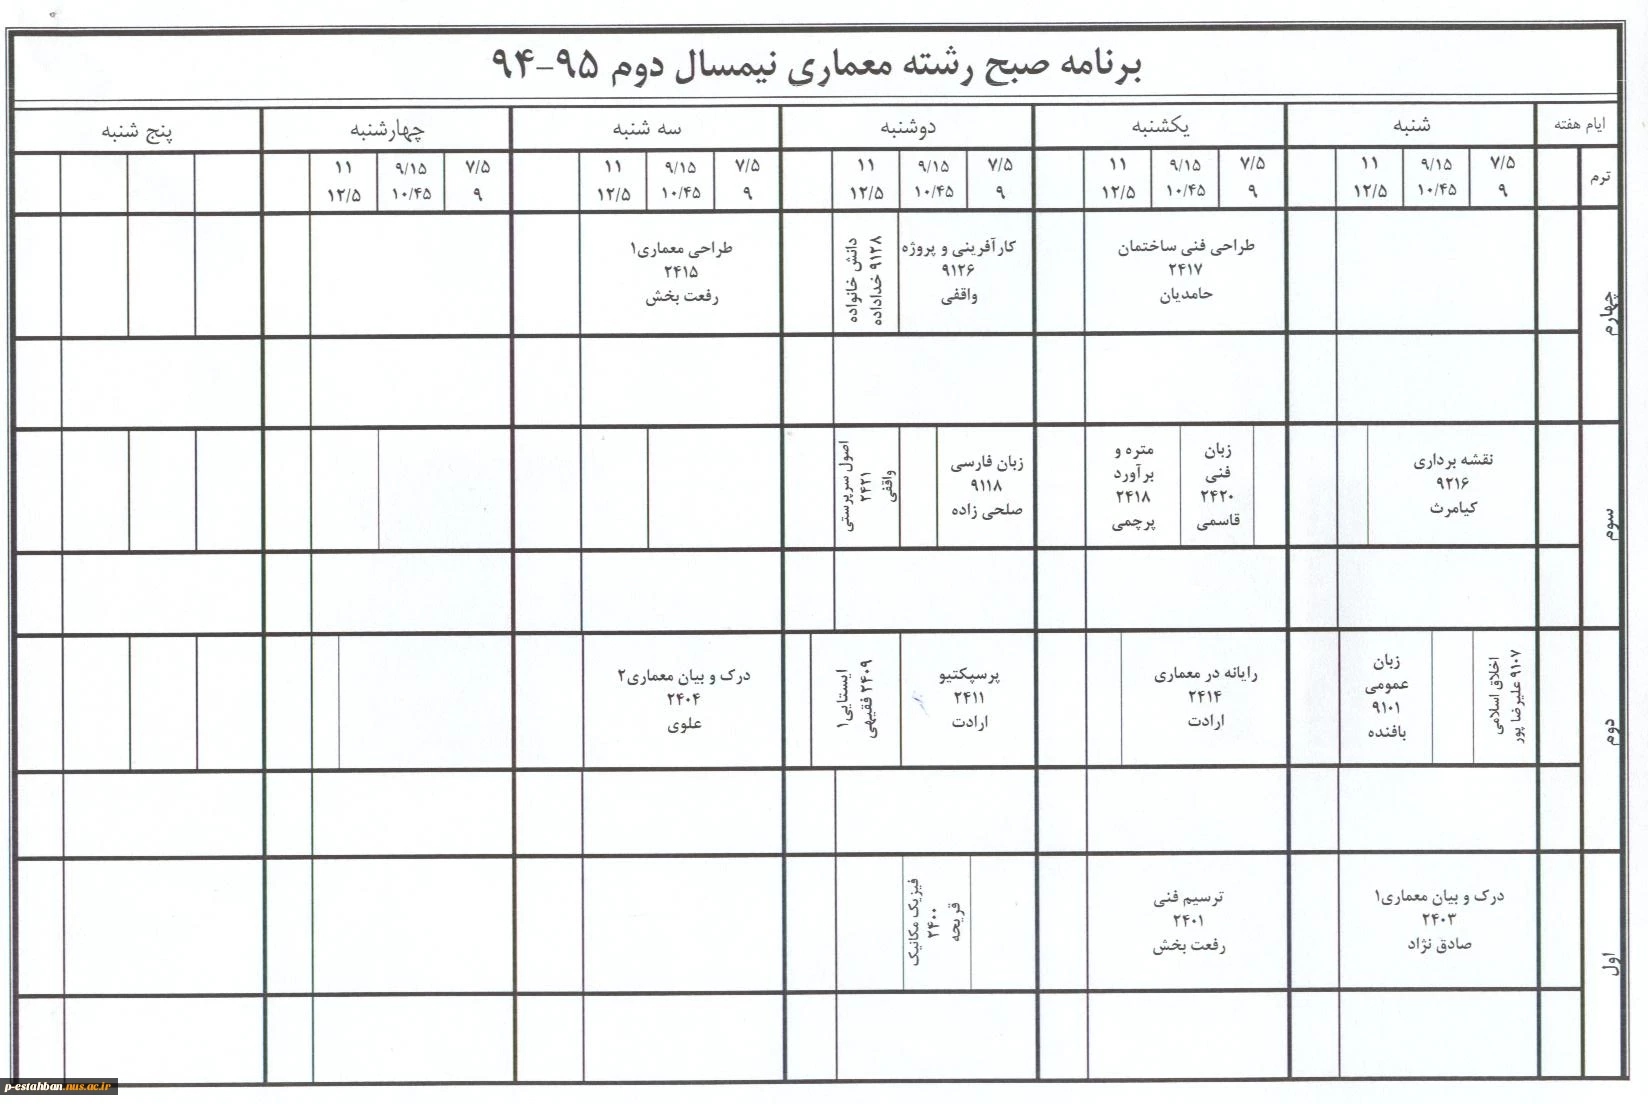 برنامه صبح رشته معماری نیمسال دوم ۹۵-۹۴
ایام هفته
شنبه
یکشنبه
دوشنبه
سه شنبه
چهارشنبه
پنج شنبه
ترم
۷/۵
۹
۹/۱۵
۱۰/۴۵
۱۱
۱۲/۵
۷/۵
۹
۹/۱۵
۱۰/۴۵
۱۱
۱۲/۵
۷/۵
۹
۹/۱۵
۱۰/۴۵
۱۱
۱۲/۵
۷/۵
۹
۹/۱۵
۱۰/۴۵
۱۱
۱۲/۵
۷/۵
۹
۹/۱۵
۱۰/۴۵
۱۱
۱۲/۵
چهارم
طراحی فنی ساختمان
۲۴۱۷
حامدیان
کارآفرینی و پروژه
۹۱۲۶
واقفی
دانش خانواده
۹۱۲۸ خداداده
طراحی معماری۱
۲۴۱۵
رفعت بخش
سوم
نقشه برداری
۹۲۱۶
کیامرث
زبان
فنی
۲۴۲۰
قاسمی
متره و
برآورد
۲۴۱۸
پرچمی
زبان فارسی
۹۱۱۸
صلحی زاده
اصول سرپرستی
۲۴۲۱
واقفی
دوم
اخلاق اسلامی
۹۱۰۷ علیرضا پور
زبان
عمومی
۹۱۰۱
بافنده
رایانه در معماری
۲۴۱۴
ارادت
پرسپکتیو
۲۴۱۱
ارادت
ایستایی۱
۲۴۰۹ فقیهی
درک و بیان معماری۲
۲۴۰۴
علوی
اول
درک و بیان معماری۱
۲۴۰۳
صادق نژاد
ترسیم فنی
۲۴۰۱
رفعت بخش
فیزیک مکانیک
۲۴۰۰
قریحه
p-estahban.nus.ac.ir